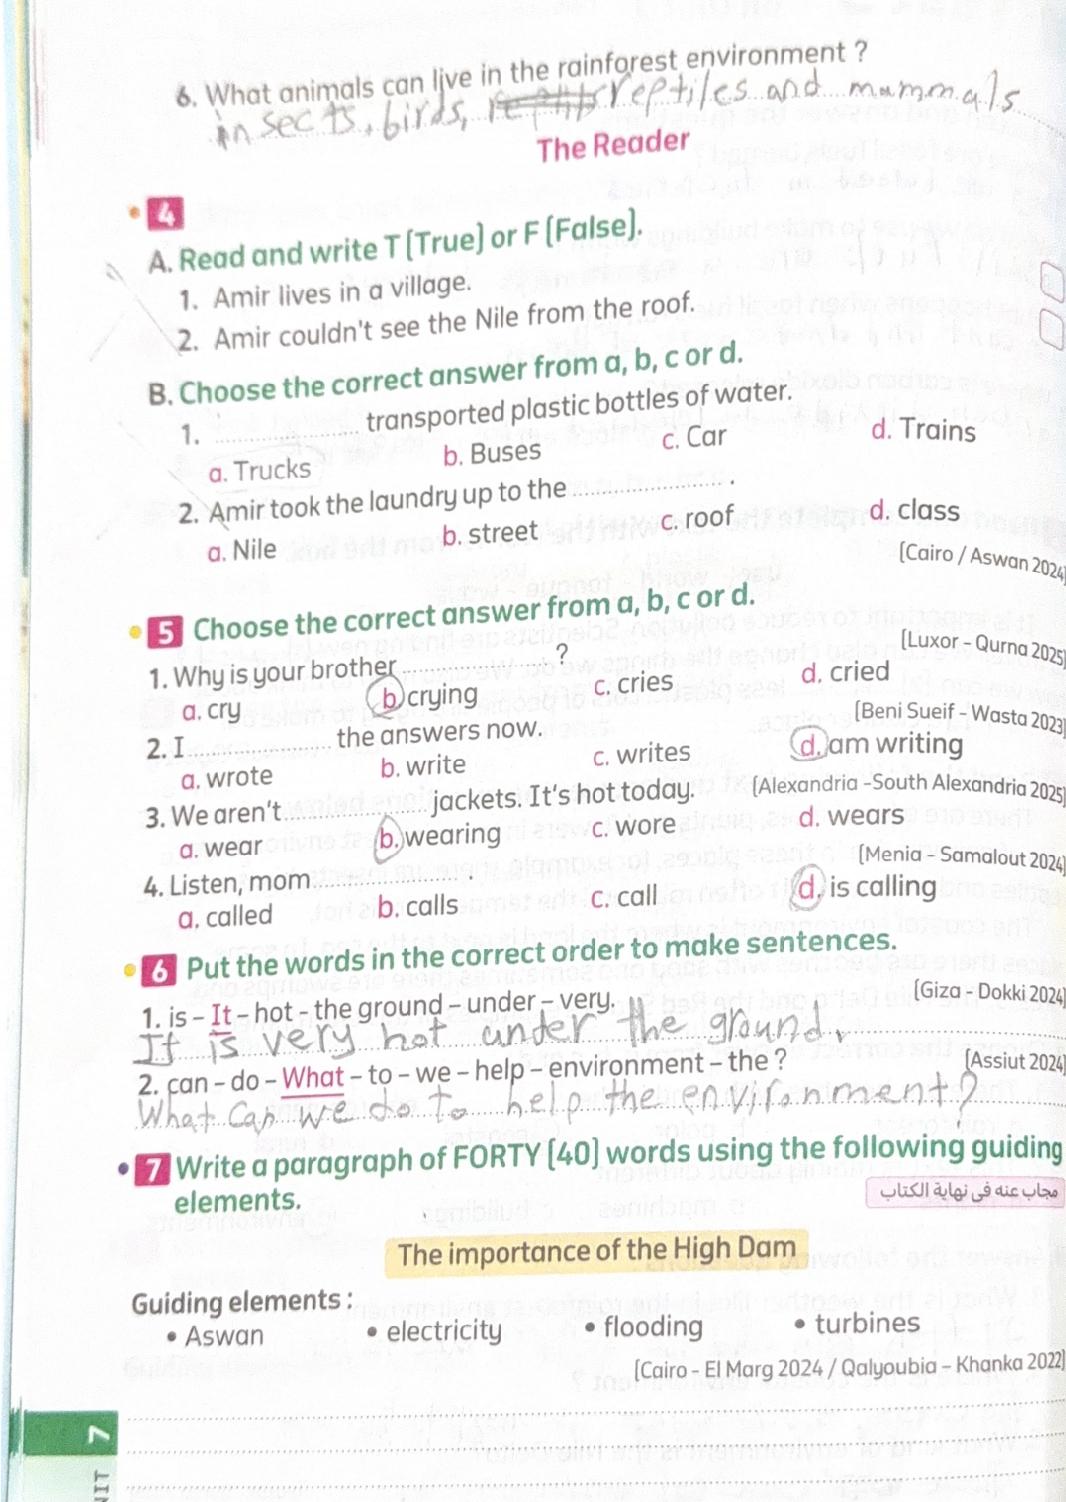 6. What animals can live in the rainforest environment ?
insects, birds, reptiles and mammals
The Reader
4
A. Read and write T (True) or F (False).
1. Amir lives in a village.
2. Amir couldn't see the Nile from the roof.
B. Choose the correct answer from a, b, c or d.
1. .................... transported plastic bottles of water.
a. Trucks b. Buses c. Car d. Trains
2. Amir took the laundry up to the .................... .
a. Nile b. street c. roof d. class
(Cairo / Aswan 2024)
5 Choose the correct answer from a, b, c or d.
1. Why is your brother .................... ? (Luxor - Qurna 2025)
a. cry b. crying c. cries d. cried
2. I .................... the answers now. (Beni Sueif - Wasta 2023)
a. wrote b. write c. writes d. am writing
3. We aren't .................... jackets. It's hot today. (Alexandria -South Alexandria 2025)
a. wear b. wearing c. wore d. wears
4. Listen, mom .................... . (Menia - Samalout 2024)
a. called b. calls c. call d. is calling
6 Put the words in the correct order to make sentences.
1. is – It – hot - the ground – under – very. (Giza - Dokki 2024)
It is very hot under the ground.
2. can – do – What – to – we – help – environment – the ? (Assiut 2024)
What can we do to help the environment?
7 Write a paragraph of FORTY (40) words using the following guiding
elements.
مجاب عنه فى نهاية الكتاب
The importance of the High Dam
Guiding elements :
• Aswan • electricity • flooding • turbines
(Cairo - El Marg 2024 / Qalyoubia – Khanka 2022)
7